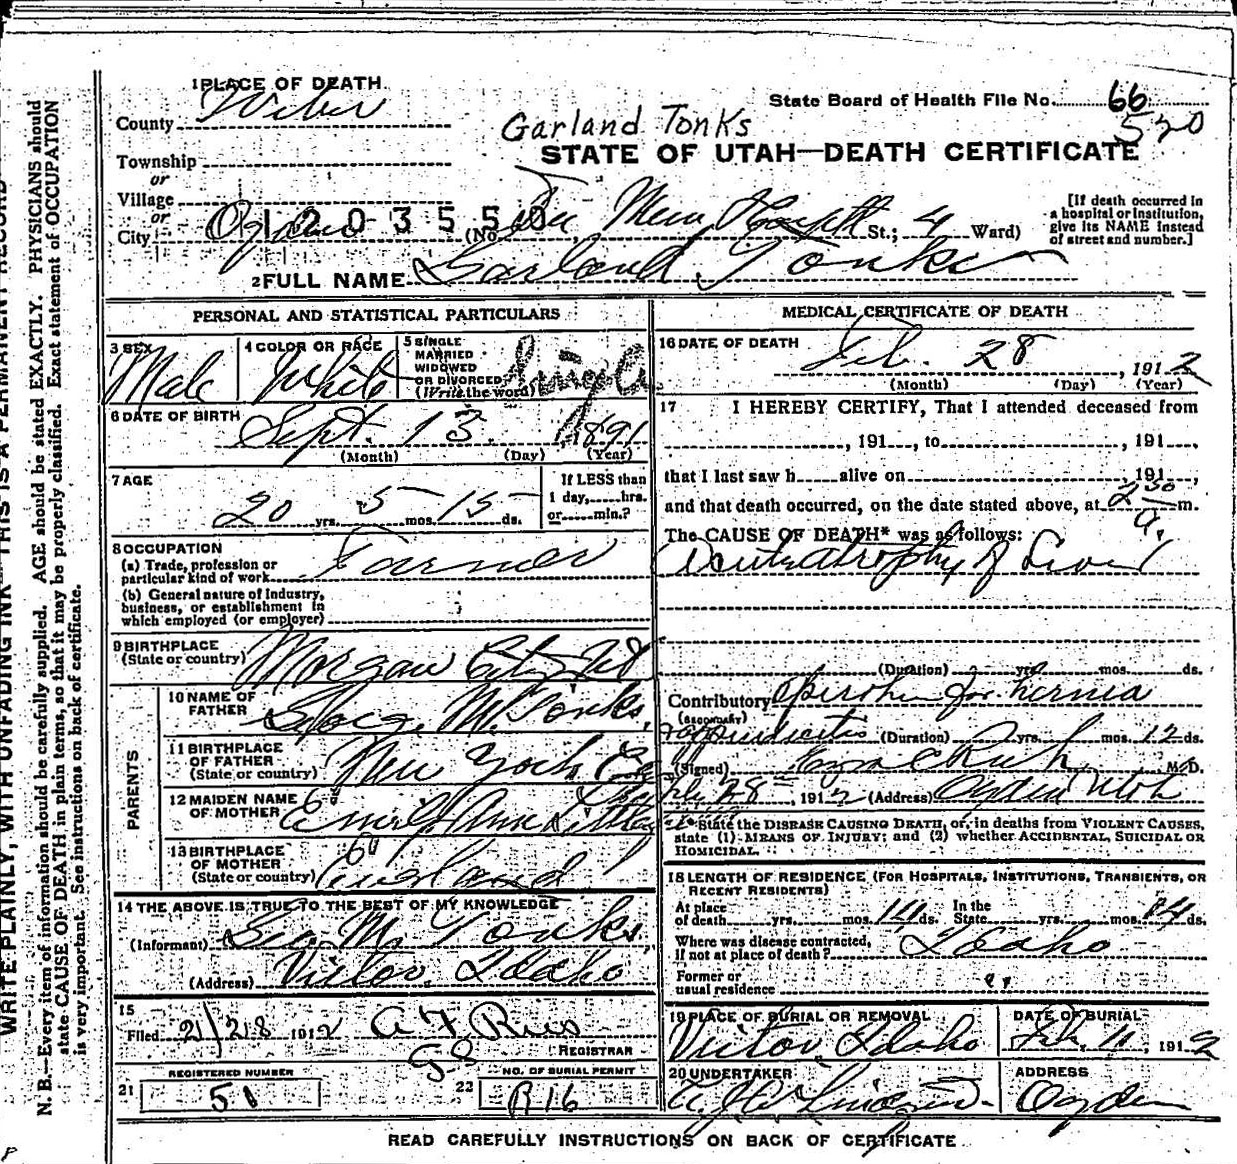 1 PLACE OF DEATH
County Weber
State Board of Health File No. 66
520
Garland Tonks
STATE OF UTAH—DEATH CERTIFICATE
Township
or
Village
or
City Ogden 1203550 (No. Dee Mem Hospital St.; 4 Ward)
[If death occurred in a hospital or institution, give its NAME instead of street and number.]
2 FULL NAME Garland Tonks
PERSONAL AND STATISTICAL PARTICULARS
3 SEX Male
4 COLOR OR RACE White
5 SINGLE MARRIED WIDOWED OR DIVORCED (Write the word) Single
6 DATE OF BIRTH Sept. 13, 1891
(Month) (Day) (Year)
7 AGE 20 yrs. 5 mos. 15 ds.
If LESS than 1 day, hrs. or min.?
8 OCCUPATION
(a) Trade, profession or particular kind of work Farmer
(b) General nature of Industry, business, or establishment in which employed (or employer)
9 BIRTHPLACE (State or country) Morgan City Ut
PARENTS
10 NAME OF FATHER Geo. M. Tonks
11 BIRTHPLACE OF FATHER (State or country) New York
12 MAIDEN NAME OF MOTHER Emily Ann
13 BIRTHPLACE OF MOTHER (State or country) England
14 THE ABOVE IS TRUE TO THE BEST OF MY KNOWLEDGE
(Informant) Geo. M. Tonks
(Address) Victor, Idaho
15
Filed 2/28 1912
REGISTRAR
21 REGISTERED NUMBER 51
22 NO. OF BURIAL PERMIT R16
MEDICAL CERTIFICATE OF DEATH
16 DATE OF DEATH Feb. 28, 1912
(Month) (Day) (Year)
17 I HEREBY CERTIFY, That I attended deceased from
, 191 , to , 191 ,
that I last saw h alive on , 191 ,
and that death occurred, on the date stated above, at 2 30 a. m.
The CAUSE OF DEATH* was as follows:
Acute atrophy of Liver
(Duration) yrs. mos. ds.
Contributory Operation for hernia
(SECONDARY)
& appendicitis (Duration) yrs. mos. 12 ds.
(Signed) Rich, M.D.
Feb 28, 1912 (Address) Ogden Utah
* State the DISEASE CAUSING DEATH, or, in deaths from VIOLENT CAUSES, state (1) MEANS OF INJURY; and (2) whether ACCIDENTAL, SUICIDAL OR HOMICIDAL.
18 LENGTH OF RESIDENCE (FOR HOSPITALS, INSTITUTIONS, TRANSIENTS, OR RECENT RESIDENTS)
At place of death yrs. mos. 14 ds. In the State yrs. mos. 14 ds.
Where was disease contracted, if not at place of death? Idaho
Former or usual residence "
19 PLACE OF BURIAL OR REMOVAL Victor, Idaho
DATE OF BURIAL 11, 1912
20 UNDERTAKER
ADDRESS Ogden
READ CAREFULLY INSTRUCTIONS ON BACK OF CERTIFICATE
WRITE PLAINLY, WITH UNFADING INK—THIS IS A PERMANENT RECORD
N. B.—Every item of information should be carefully supplied. AGE should be stated EXACTLY. PHYSICIANS should
state CAUSE OF DEATH in plain terms, so that it may be properly classified. Exact statement of OCCUPATION
is very important. See instructions on back of certificate.